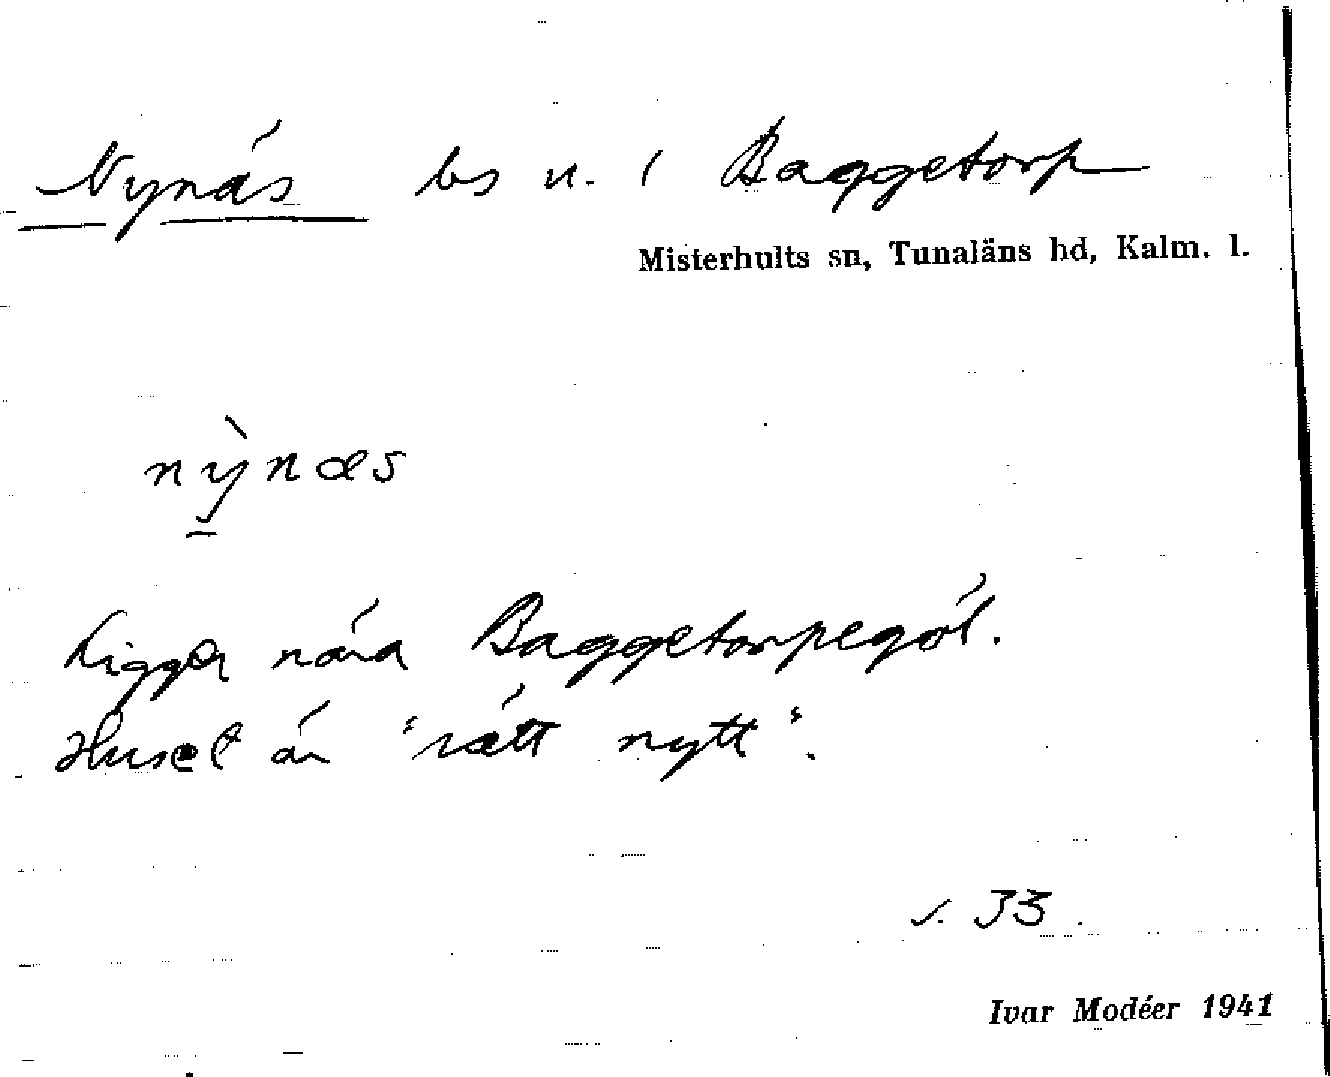 Nynäs bs n. i Baggetorp
Misterhults sn, Tunaläns hd, Kalm. l.
nỳnæs
Ligger nära Baggetorpegöl.
Huset är "rätt nytt".
s. 33.
Ivar Modéer 1941